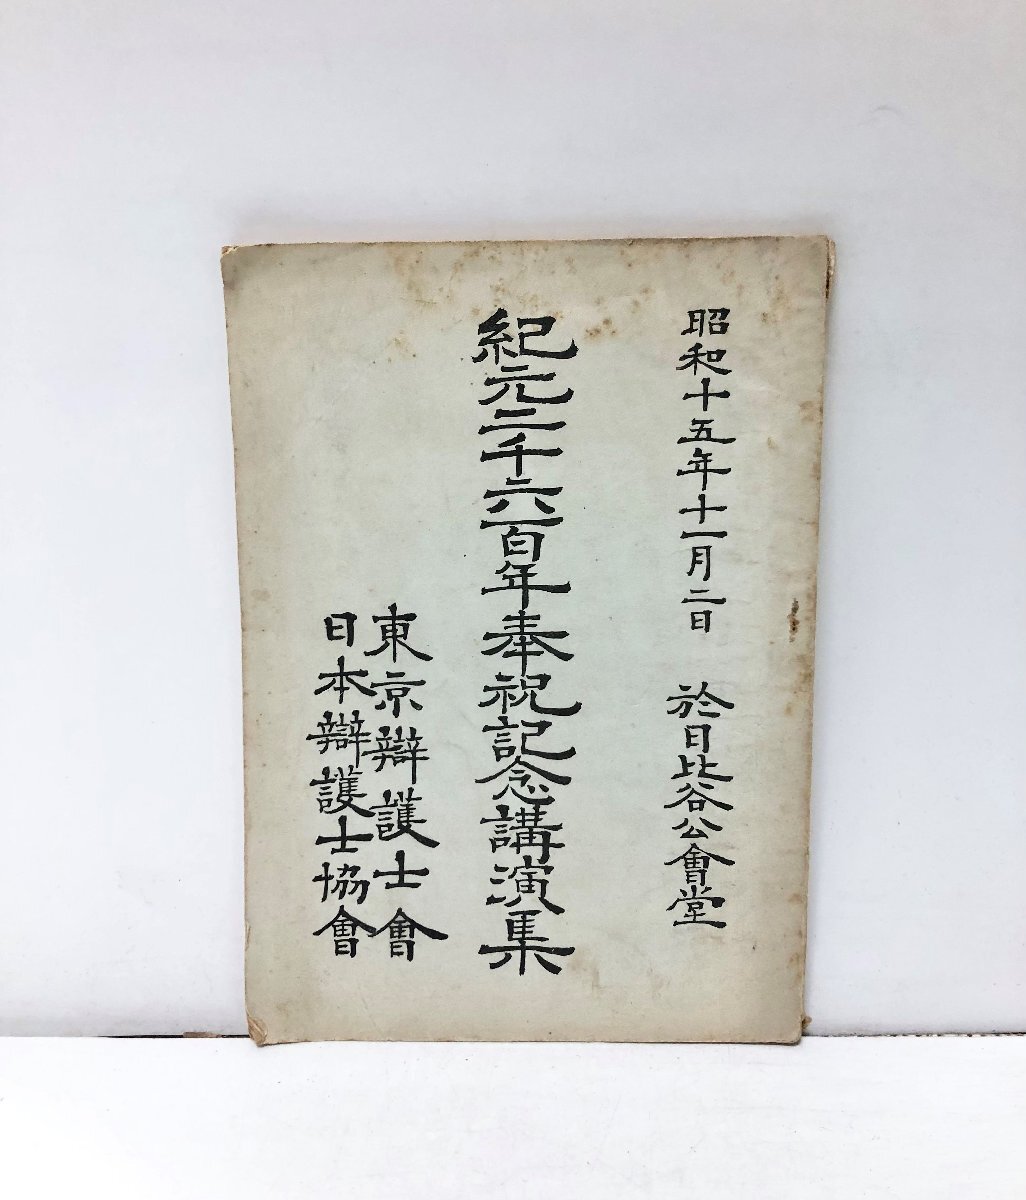 昭和十五年十一月二日 於日比谷公會堂
紀元二千六百年奉祝記念講演集
東京辯護士會
日本辯護士協會